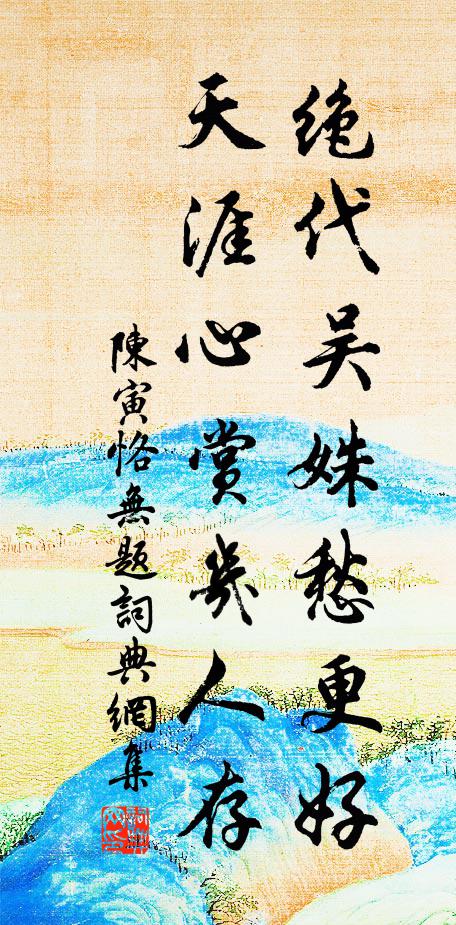 绝代吴姝愁更好
天涯心赏幾人存
陳寅恪無题詞典網集